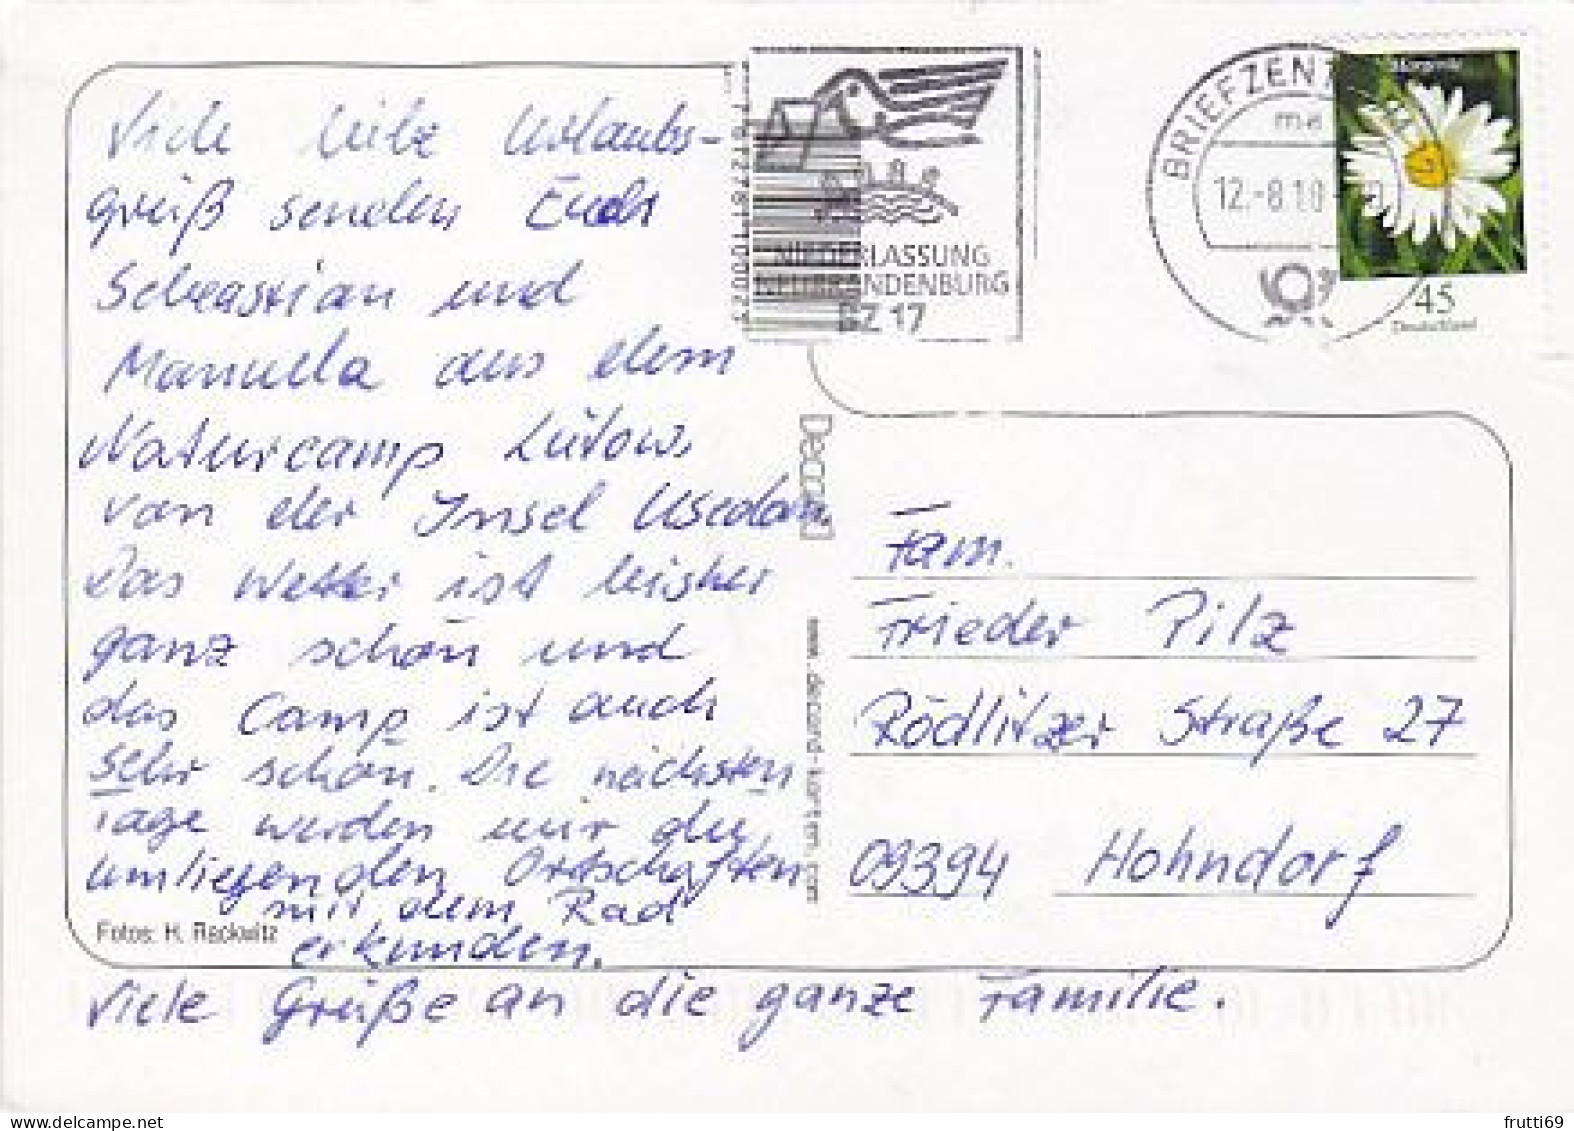 Viele liebe Urlaubs-
grüß senden Euch
Sebastian und
Manuela aus dem
Naturcamp Lütow,
von der Insel Usedom.
Das Wetter ist bisher
ganz schön und
das Camp ist auch
sehr schön. Die nächsten
Tage werden wir die
umliegenden Ortschaften
mit dem Rad
erkunden.
Viele Grüße an die ganze Familie.
Fotos: H. Rackwitz
NIEDERLASSUNG
NEUBRANDENBURG
BZ 17
BRIEFZENT
12.-8.18
45
Deutschland
www.decond-karten.com
Fam.
Frieder Pilz
Rödlitzer Straße 27
09394 Hohndorf
frutti69